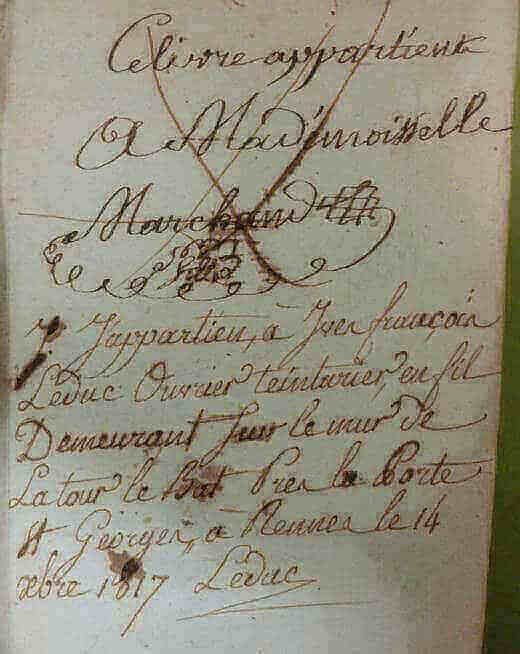 Ce livre appartient
A Mademoisselle
Marchand
J'appartien, à Yves françois
Léduc Ouvrier teinturier, en fil
Demeurant Sur le mur de
La tour le Bat Pres la Porte
St Georges, à Rennes le 14
xbre 1817 Léduc